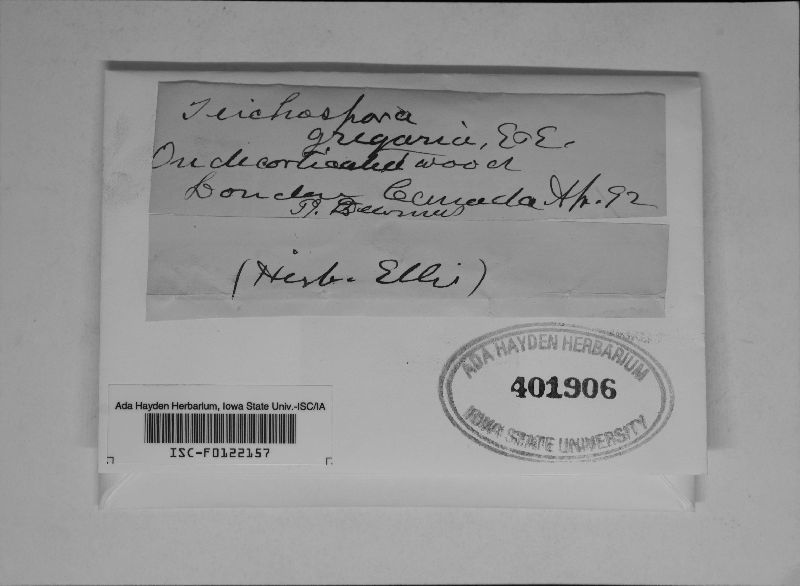 Teichospora
gregaria, E&E.
On decorticated wood
London Canada Ap. 92
Dearness
(Herb. Ellis)
ADA HAYDEN HERBARIUM
401906
IOWA STATE UNIVERSITY
Ada Hayden Herbarium, Iowa State Univ.-ISC/IA
ISC-F0122157